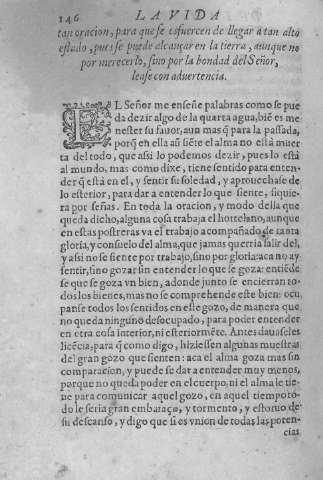 146 LA VIDA
tan oracion, para que se esfuercen de llegar a tan alto
estado, pues se puede alcançar en la tierra, aunque no
por merecerlo, sino por la bondad del Señor,
lease con aduertencia.
EL Señor me enseñe palabras como se pue
da dezir algo de la quarta agua, biē es me
nester su fauor, aun mas q̄ para la passada,
porq̄ en ella aū siēte el alma no està muer
ta del todo, que assi lo podemos dezir, pues lo està
al mundo, mas como dixe, tiene sentido para enten-
der q̄ està en el, y sentir su soledad, y aprouechase de
lo esterior, para dar a entender lo que siente, siquie-
ra por señas. En toda la oracion, y modo della que
queda dicho, alguna cosa trabaja el hortelano, aunque
en estas postreras va el trabajo acompañado de tanta
gloria, y consuelo del alma, que jamas querria salir del,
y assi no se siente por trabajo, sino por gloria: aca no ay
sentir, sino gozar sin entender lo que se goza: entiēde
se que se goza vn bien, adonde junto se encierran to-
dos los bienes, mas no se comprehende este bien: ocu
panse todos los sentidos en este gozo, de manera que
no queda ninguno desocupado, para poder entender
en otra cosa interior, ni esteriormēte. Antes dauaseles
licēcia, para q̄ como digo, hiziessen algunas muestras
del gran gozo que sienten: aca el alma goza mas sin
comparacion, y puede se dar a entender muy menos,
porque no queda poder en el cuerpo, ni el alma le tie-
ne para comunicar aquel gozo, en aquel tiempo to-
do le seria gran embaraço, y tormento, y estoruo de
su descanso, y digo que si es vnion de todas las poten-
cias